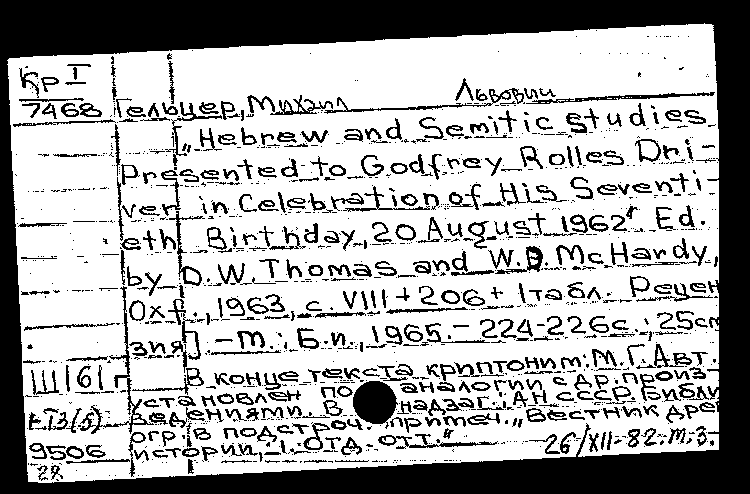 Кр I
7468 Гельцер, Михаил Львович
[„Hebrew and Semitic studies
Presented to Godfrey Rolles Dri-
ver in Celebration of His Seventi-
eth Birthday, 20 August 1962" Ed.
by D.W. Thomas and W.D. McHardy,
Oxf., 1963, с. VIII + 206 + 1 табл. Рецен
зия] . - М.: Б.и., 1965. - 224-226с.; 25см
III/6/г В конце текста криптоним: М.Г. Авт.
установлен по аналогии с др. произ
ведениями. В надзаг.: АН СССР. Библи
огр. в подстроч. примеч. „Вестник древ
9506 истории, 1. Отд. отт."
28 26/XII-82-м.з.